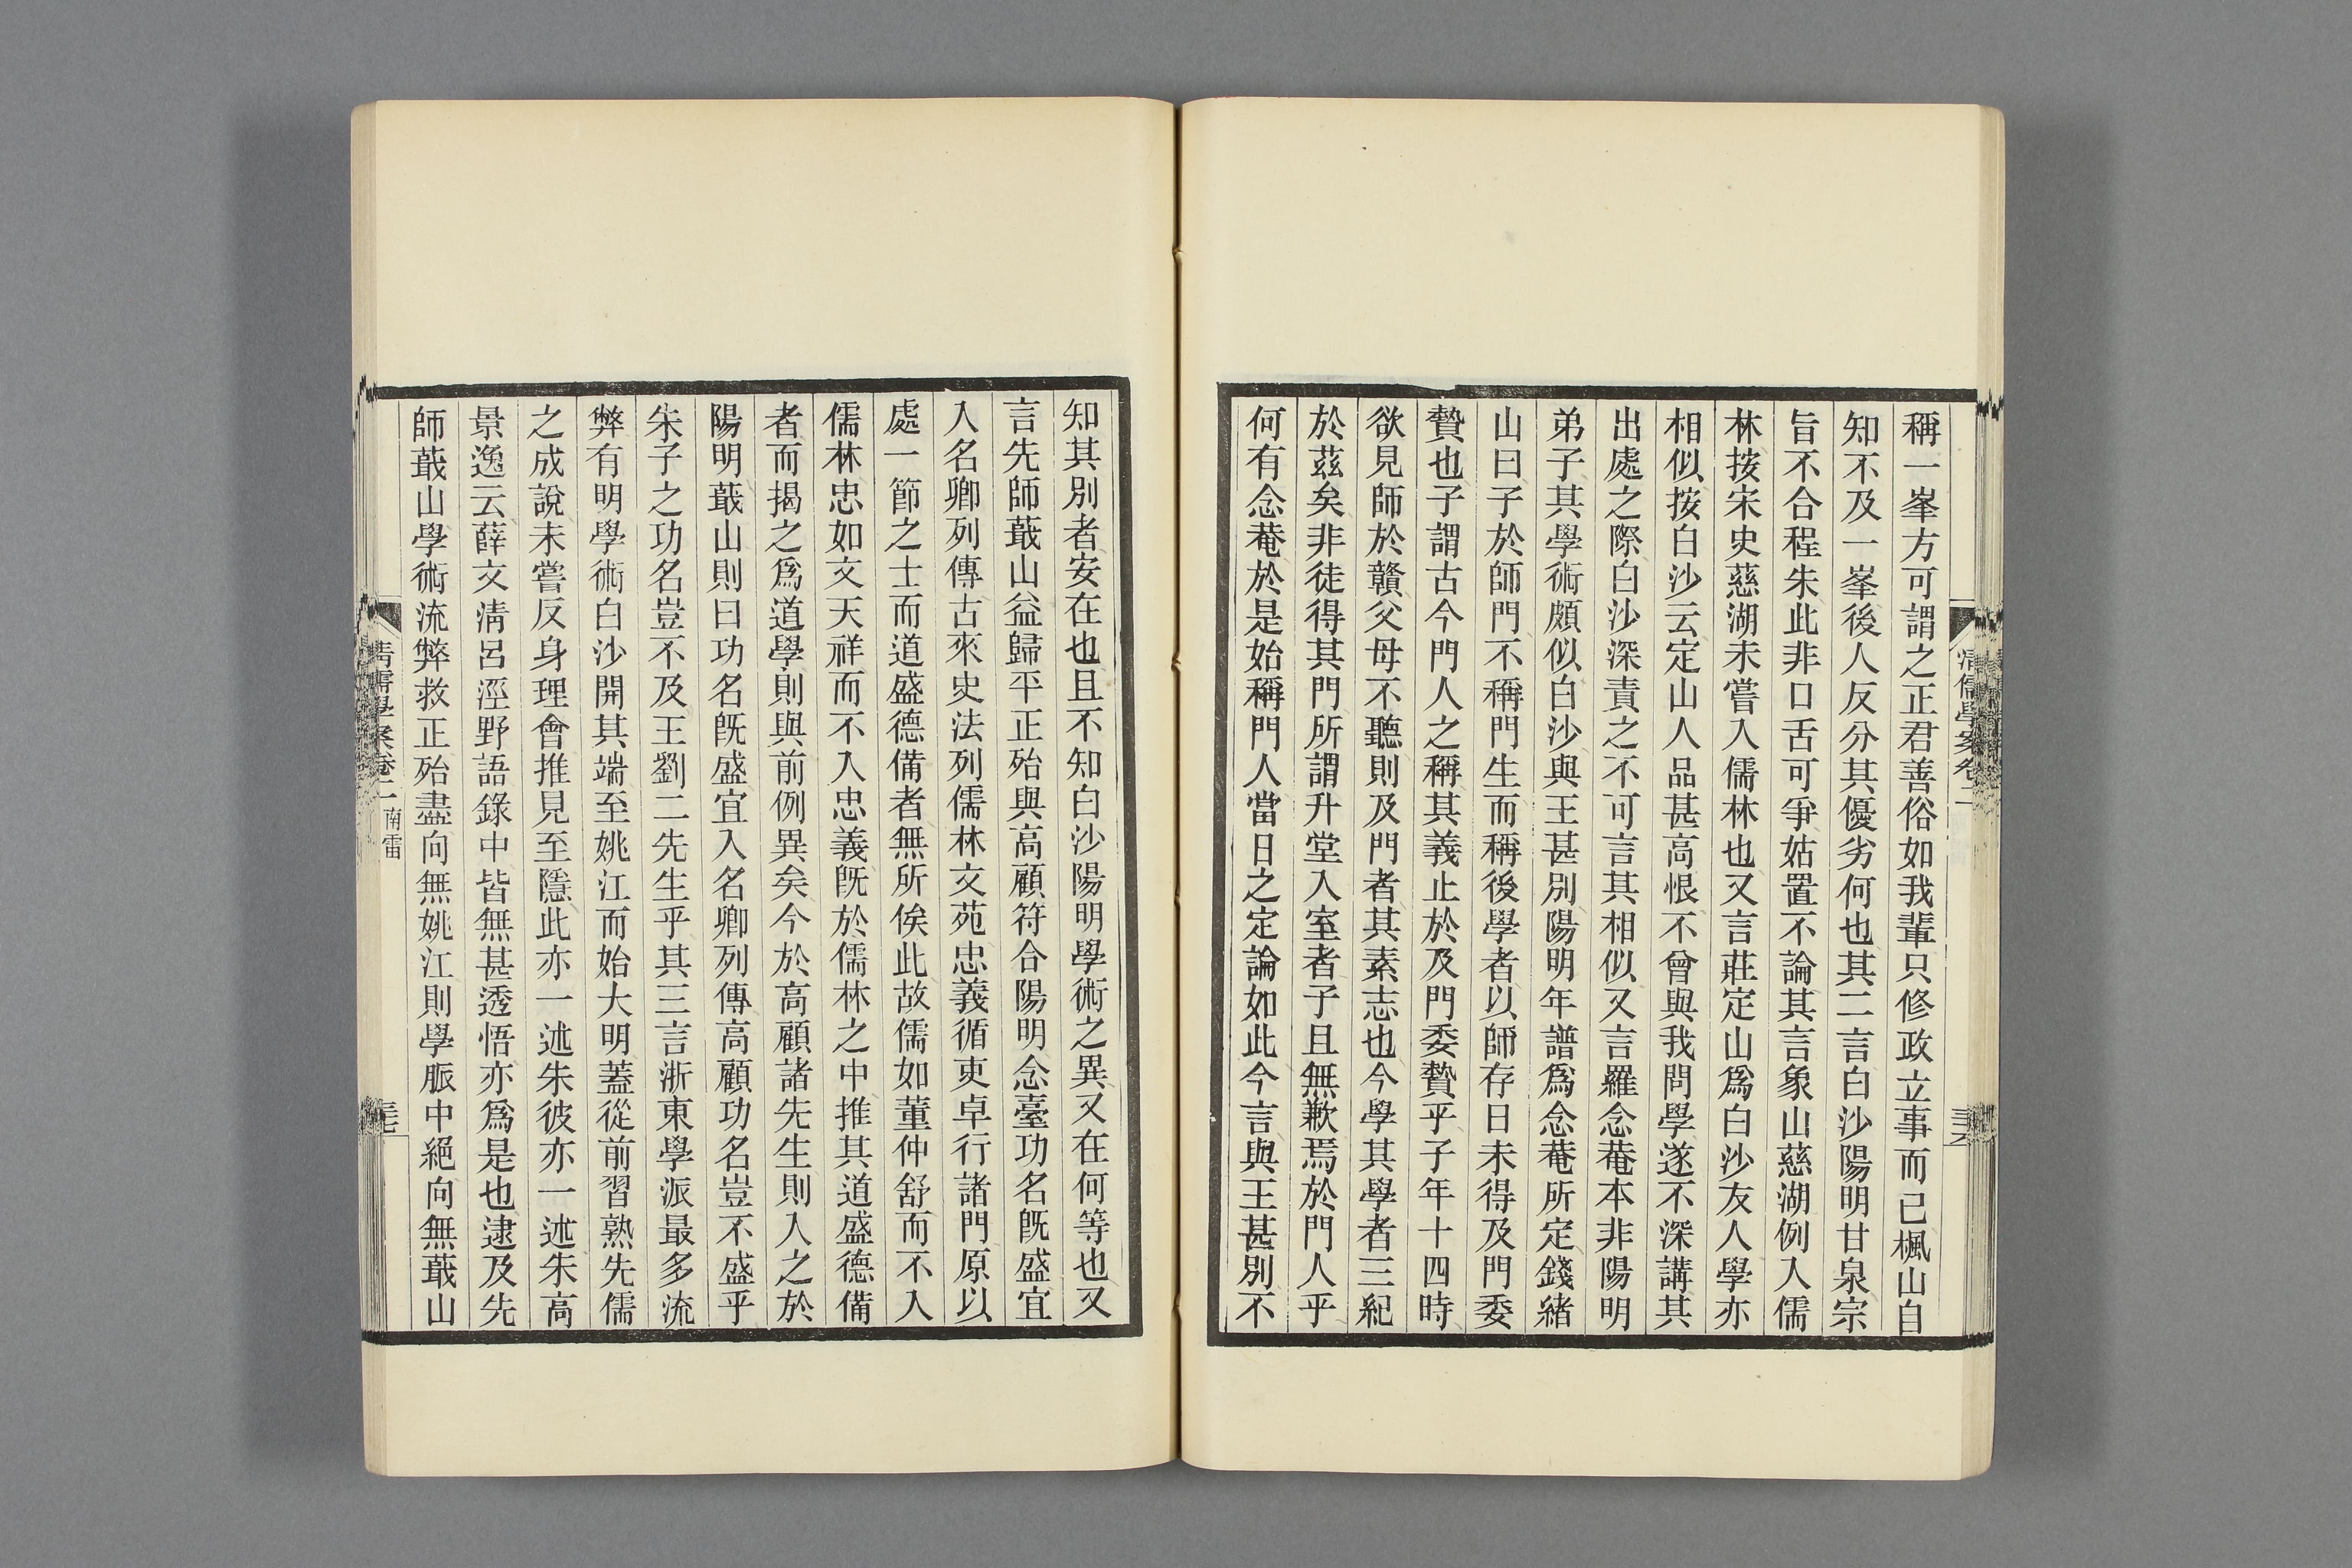 清儒學案卷二
三十六
稱一峯方可謂之正君善俗如我輩只修政立事而已楓山自
知不及一峯後人反分其優劣何也其二言白沙陽明甘泉宗
旨不合程朱此非口舌可爭姑置不論其言象山慈湖例入儒
林按宋史慈湖未嘗入儒林也又言莊定山爲白沙友人學亦
相似按白沙云定山人品甚高恨不曾與我問學遂不深講其
出處之際白沙深責之不可言其相似又言羅念菴本非陽明
弟子其學術頗似白沙與王甚別陽明年譜爲念菴所定錢緒
山曰子於師門不稱門生而稱後學者以師存日未得及門委
贄也子謂古今門人之稱其義止於及門委贄乎子年十四時
欲見師於贛父母不聽則及門者其素志也今學其學者三紀
於茲矣非徒得其門所謂升堂入室者子且無歉焉於門人乎
何有念菴於是始稱門人當日之定論如此今言與王甚別不
知其別者安在也且不知白沙陽明學術之異又在何等也又
言先師蕺山益歸平正殆與高顧符合陽明念臺功名既盛宜
入名卿列傳古來史法列儒林文苑忠義循吏卓行諸門原以
處一節之士而道盛德備者無所俟此故儒如董仲舒而不入
儒林忠如文天祥而不入忠義既於儒林之中推其道盛德備
者而揭之爲道學則與前例異矣今於高顧諸先生則入之於
陽明蕺山則曰功名既盛宜入名卿列傳高顧功名豈不盛乎
朱子之功名豈不及王劉二先生乎其三言浙東學派最多流
弊有明學術白沙開其端至姚江而始大明蓋從前習熟先儒
之成說未嘗反身理會推見至隱此亦一述朱彼亦一述朱高
景逸云薛文清呂涇野語錄中皆無甚透悟亦爲是也逮及先
師蕺山學術流弊救正殆盡向無姚江則學脈中絕向無蕺山
清儒學案卷二 南雷
三十七